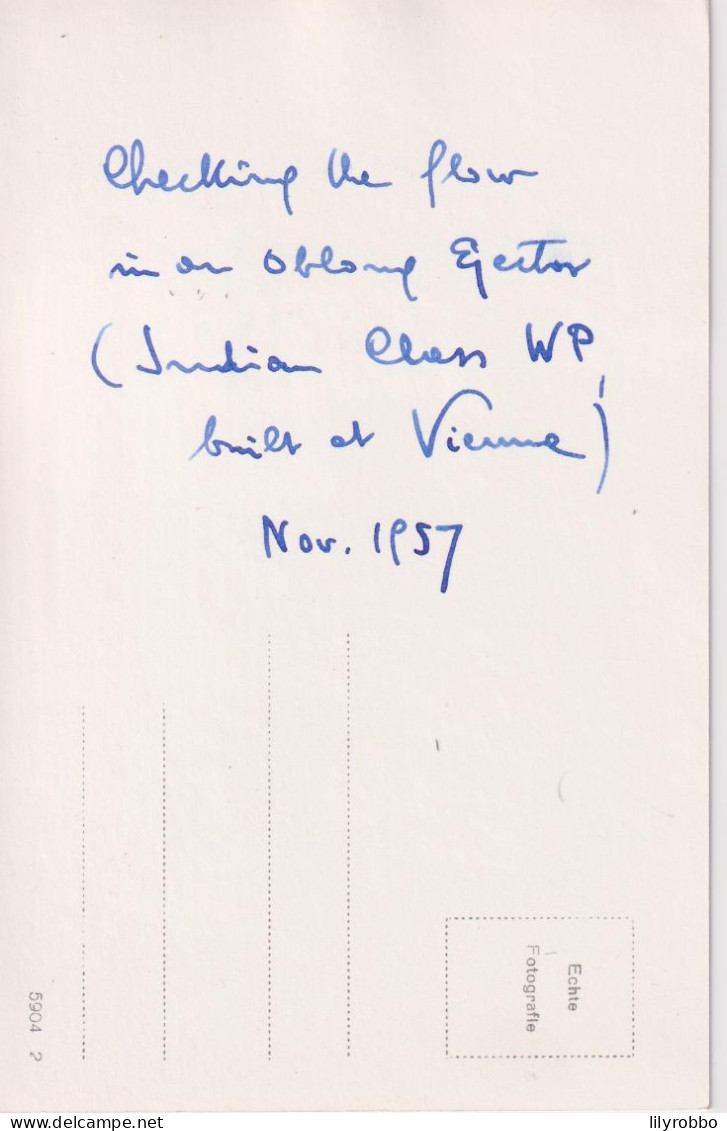 Checking the flow
in an Oblong Ejector
(Indian Class WP,
built at Vienna)
Nov. 1957
Echte
Fotografie
5904 2
lilyrobbo